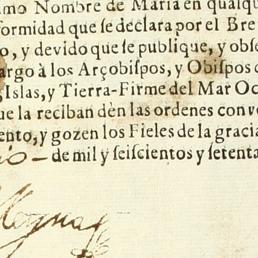 mo Nombre de Maria en qualqu
formidad que se declara por el Bre
o, y devido que se publique, y obse
argo à los Arçobispos, y Obispos d
Islas, y Tierra-Firme del Mar Oc
ue la reciban dèn las ordenes conv
ento, y gozen los Fieles de la gracia
de mil y seiscientos y setenta